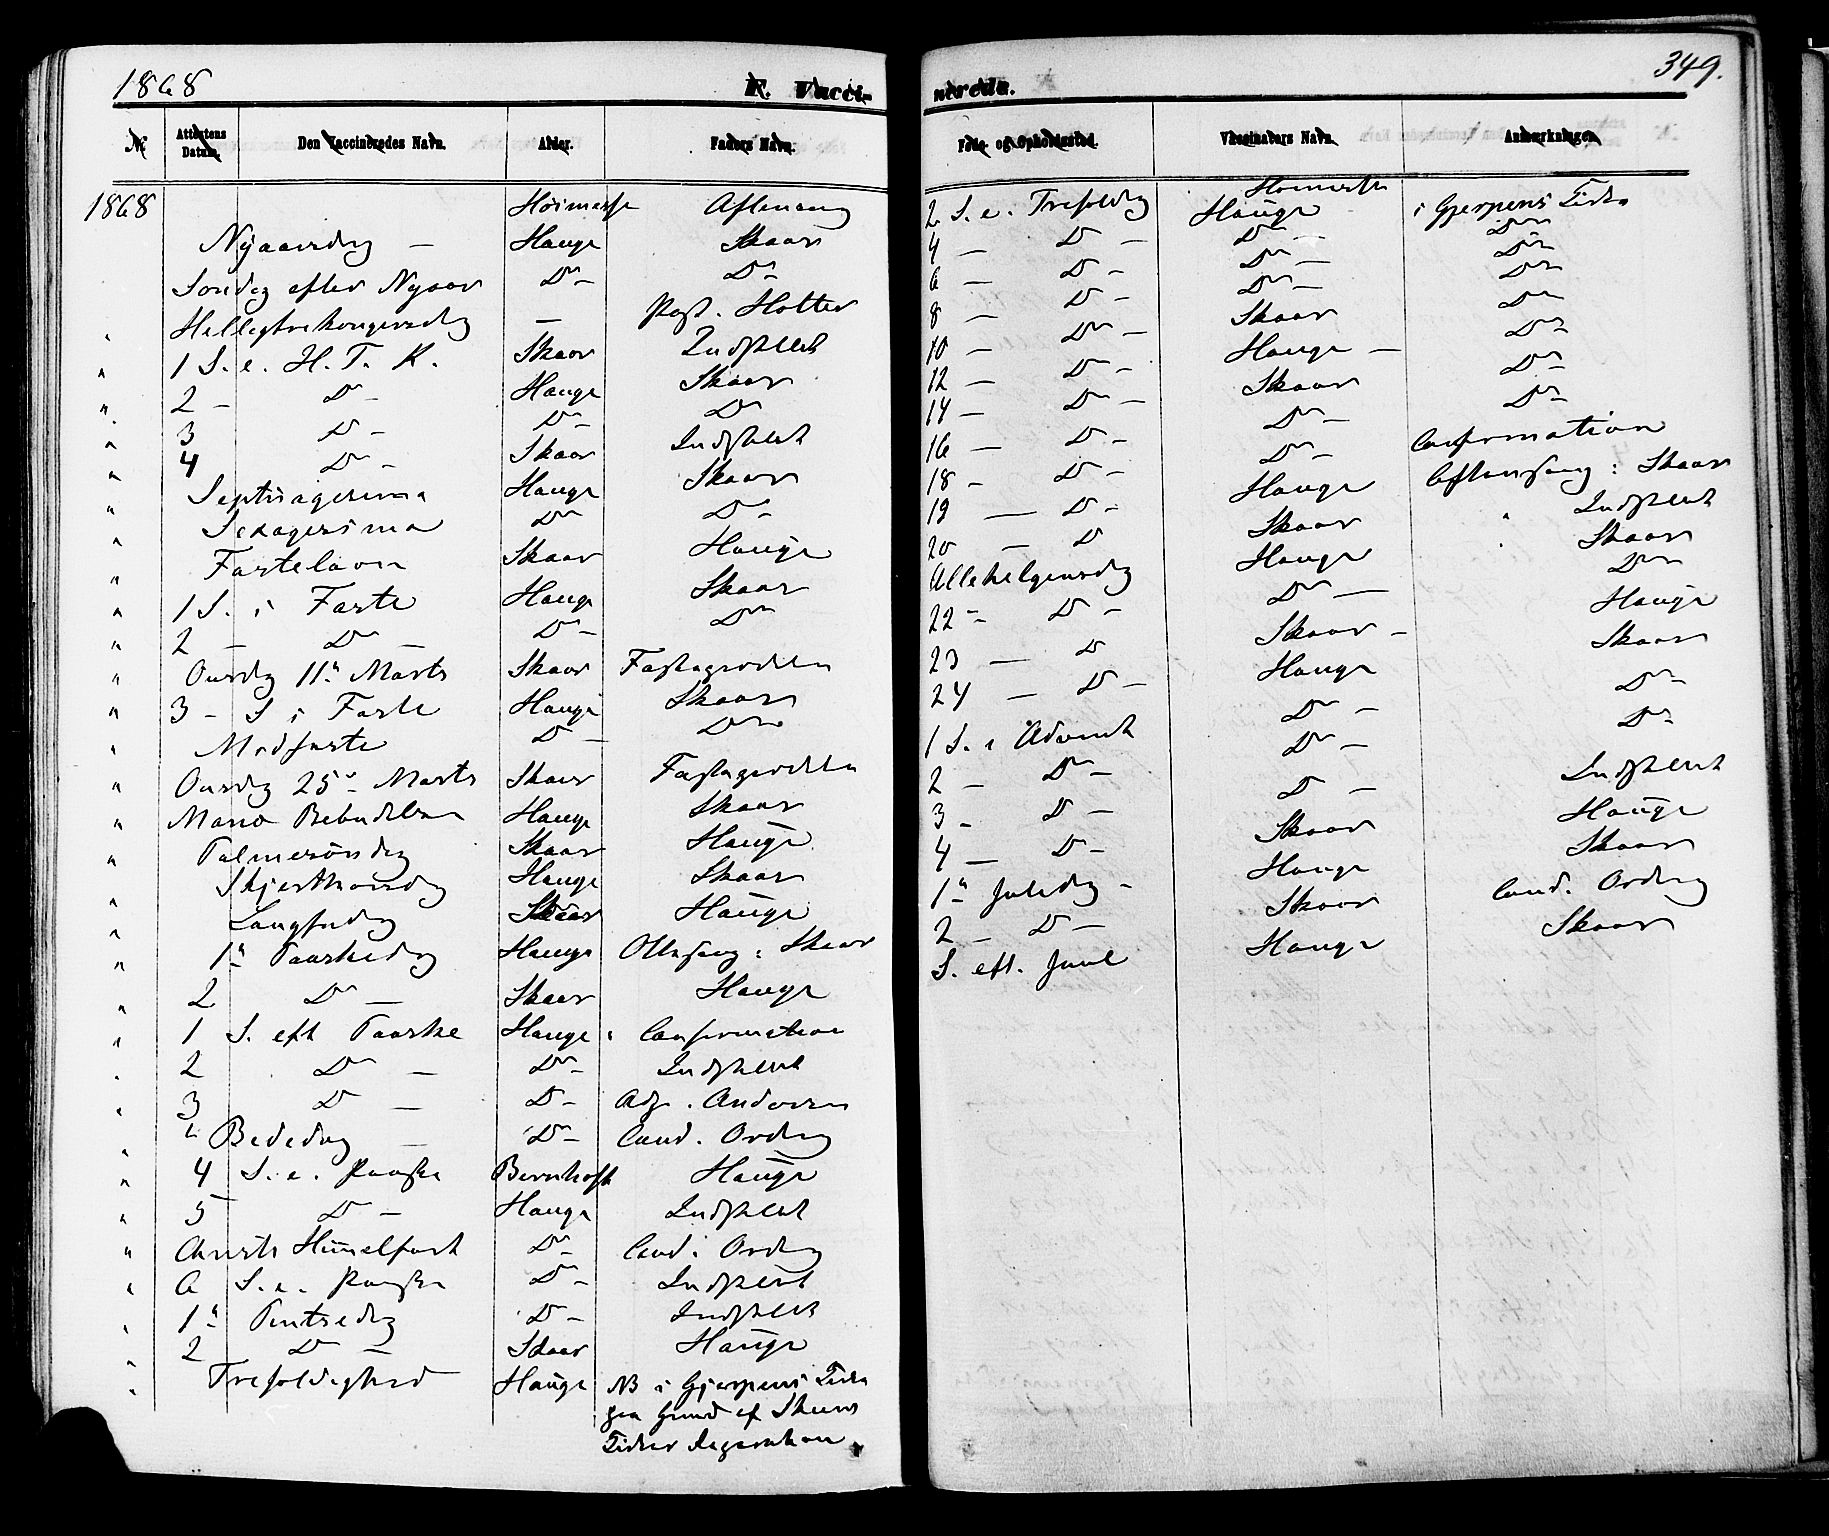 1868
F. Vacci-
№ Attestens Datum. Den Vaccineredes Navn. Alder. Faders Navn.
1868 Høimesse Aftensang
Nyaarsdag — Hauge Skaar
Søndag efter Nyaar Do - Do -
Helligtrekongersdag — Past. Holter
" 1 S. e. H. T. K. Skaar Indstillet
" 2 - Do - Hauge Skaar
" 3 Do - Do - Do
" 4 Do - Skaar Indstillet
" Septuagesima Hauge Skaar
" Sexagesima Do Do -
" Fastelavn Skaar Hauge
" 1 S. i Faste Hauge Skaar
" 2 - Do - Do - Do
" Onsdag 11te Marts Skaar Fastepræken
" 3 - S i Faste Hauge Skaar
" Midfaste Do - Do
" Onsdag 25de Marts Skaar Fastepræken
" Maria Bebudelse Hauge Skaar
" Palmesøndag Skaar Hauge
" Skjærthorsdag Hauge Skaar
" Langfredag Skaar Hauge
" 1te Paaskedag Hauge Ottesang: Skaar
" 2 Do — Skaar Hauge
" 1 S. eft Paaske Hauge: Confirmation
" 2 Do — Do - Indstillet
" 3 Do — Do - Adj. Andersen
" Bededag — Do - Cand. Ording
" 4 S. e. Paaske Bernhoft Hauge
" 5 Do - Hauge Indstillet
" Christi Himmelfart Do - Cand. Ording
" 6 S. e. Paaske Do - Indstillet
" 1te Pintsedag Do - Indstillet
" 2 Do - Skaar Hauge
" Trefoldighed Hauge NB i Gjerpens Kirke
paa Grund af Skiens
Kirkes Reparation
349.
nerede.
Føde- og Opholdssted. Vaccinators Navn. Anmærkninger.
Høimesse
2 S. e. Trefoldig Hauge i Gjerpens Kirke
4 — Do — Do — Do
6 — Do - Do — Do
8 — Do - Do — Do
10 — Do — Skaar Do
12 — Do - Hauge — Do
14 — Do — Skaar Do
16 — Do - Do - Do -
18 - Do - Do - Confirmation
19 — Do - Hauge Aftensang: Skaar
20 — Do Skaar " Indstillet
Allehelgensdag Hauge " Skaar
22 - Do - Do — Do
23 — Do Skaar - Hauge
24 — Do - Hauge Skaar
1 S. i Advent Do - Do -
2 - Do - Do - Do -
3 - Do - Do - Indstillet
4 — Do - Skaar Hauge
1te Juledag - Hauge Skaar
2 - Do - Skaar Cand. Ording
S. eft. Juul Hauge Skaar